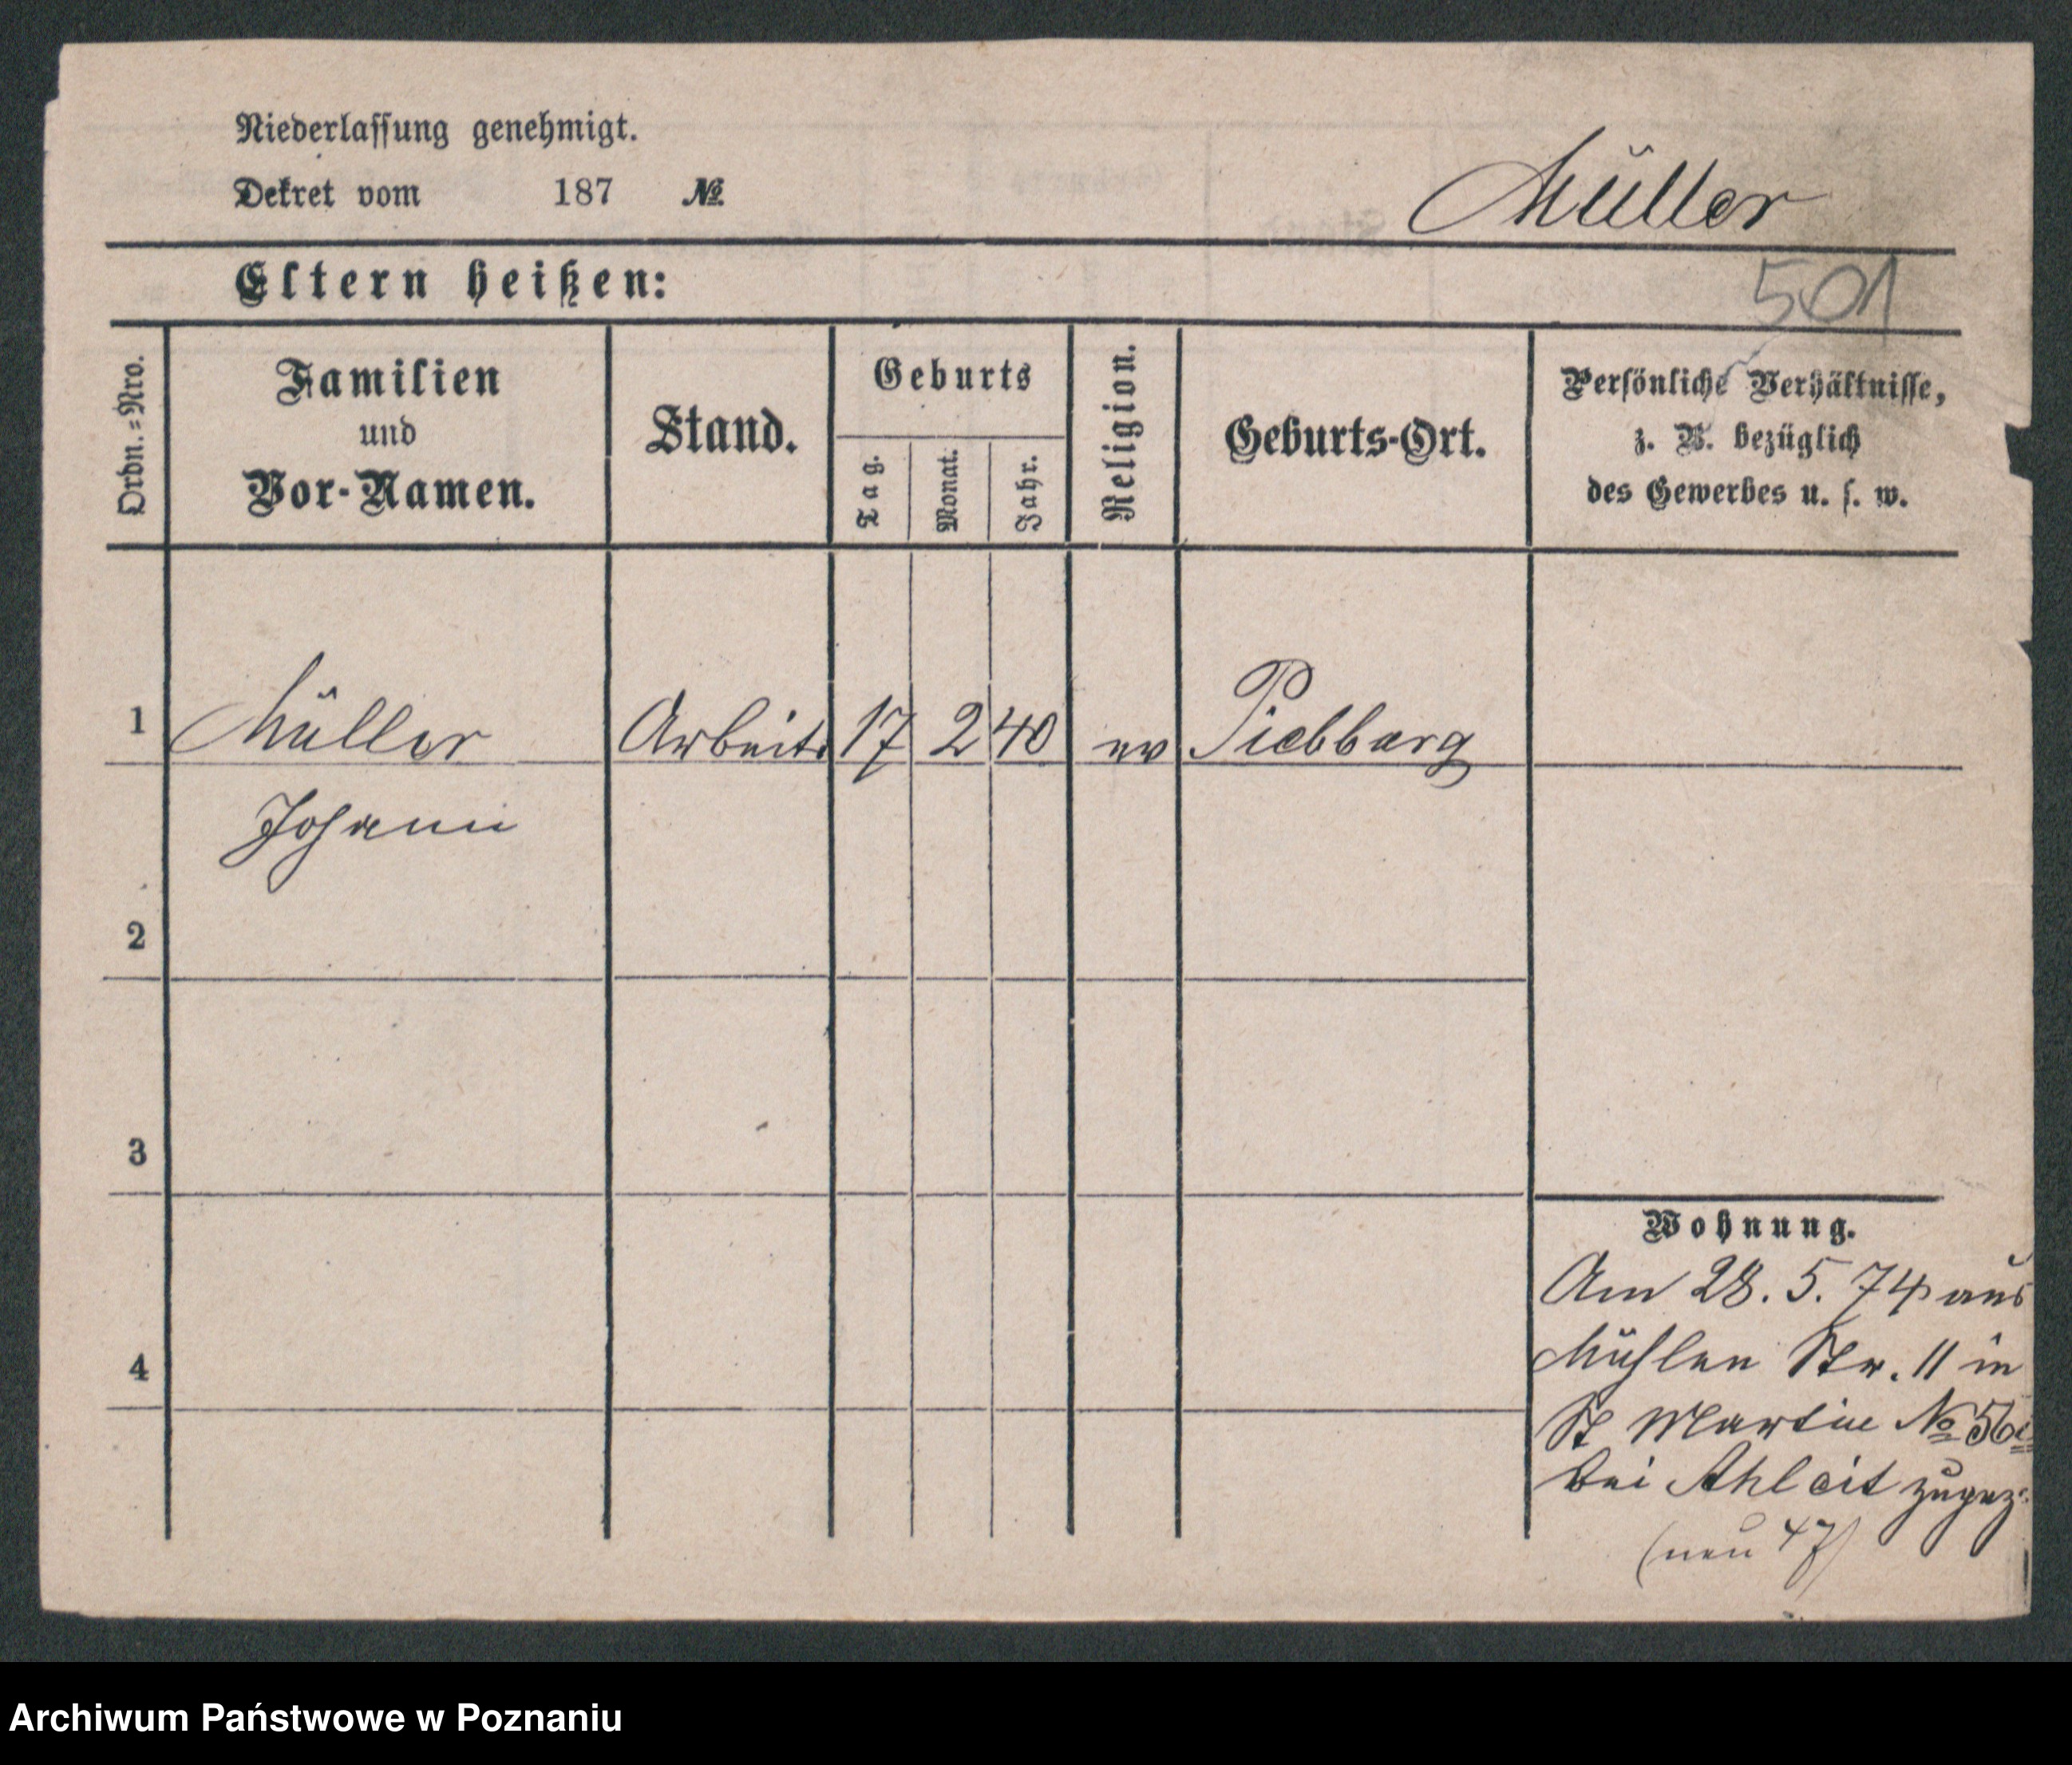 Niederlassung genehmigt.
Dekret vom 187 №
Müller
Eltern heißen:
501
Ordn.=Nro.
Familien
und
Vor-Namen.
Stand.
Geburts
Tag.
Monat.
Jahr.
Religion.
Geburts-Ort.
Persönliche Verhältnisse,
z. B. bezüglich
des Gewerbes u. s. w.
1 Müller Arbeitr 17 2 40 ev
Johann
2
3
4
Wohnung.
Am 28. 5. 74 aus
Mühlen Str. 11 in
St Martin № 56
bei zugez.
(neu 47)
Archiwum Państwowe w Poznaniu